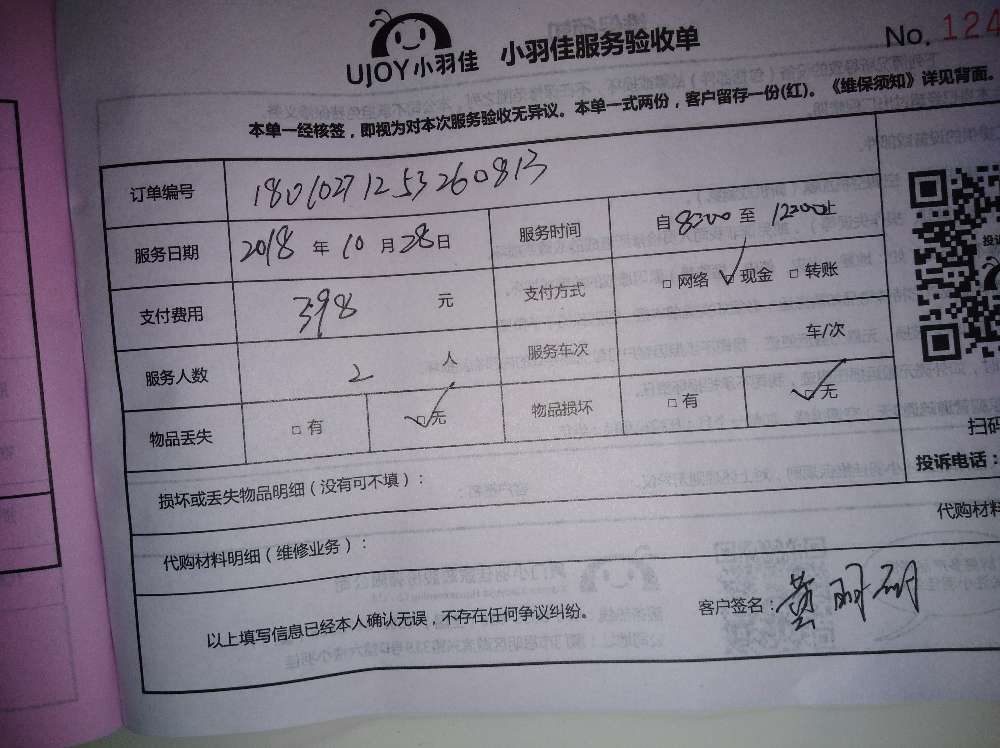 UJOY小羽佳 小羽佳服务验收单 No. 124
本单一经核签，即视为对本次服务验收无异议。本单一式两份，客户留存一份(红)。《维保须知》详见背面。
订单编号 18010271253260813
服务日期 2018 年 10 月 28 日 服务时间 自 8:00 至 12:00止
支付费用 398 元 支付方式 □ 网络 □ 现金 □ 转账
服务人数 2 人 服务车次 车/次
物品丢失 □ 有 □ 无 物品损坏 □ 有 □ 无
扫码
投诉电话：
损坏或丢失物品明细（没有可不填）：
代购材料
代购材料明细（维修业务）：
以上填写信息已经本人确认无误，不存在任何争议纠纷。 客户签名：黄